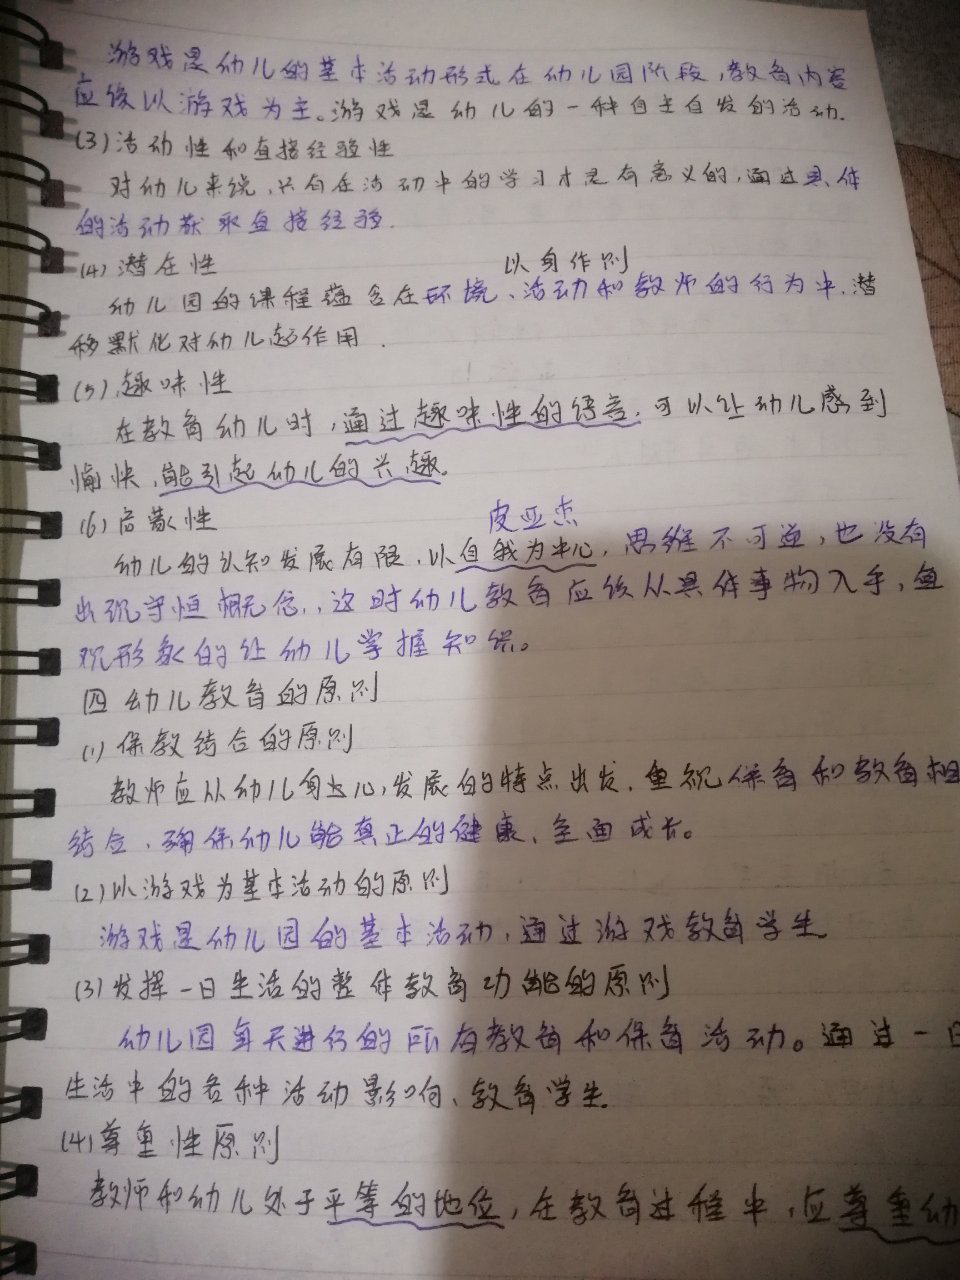 游戏是幼儿的基本活动形式在幼儿园阶段,教育内容
应该以游戏为主。游戏是幼儿的一种自主自发的活动.
(3)活动性和直接经验性
对幼儿来说,只有在活动中的学习才是有意义的,通过具体
的活动获取直接经验.
(4)潜在性
以身作则
幼儿园的课程蕴含在环境、活动和教师的行为中.潜
移默化对幼儿起作用.
(5)趣味性
在教育幼儿时,通过趣味性的语言,可以让幼儿感到
愉快,能引起幼儿的兴趣.
(6)启蒙性
皮亚杰
幼儿的认知发展有限,以自我为中心,思维不可逆,也没有
出现守恒概念,,这时幼儿教育应该从具体事物入手,直
观形象的让幼儿掌握知识。
四 幼儿教育的原则
(1)保教结合的原则
教师应从幼儿身心,发展的特点出发,重视保育和教育相
结合,确保幼儿能真正的健康、全面成长。
(2)以游戏为基本活动的原则
游戏是幼儿园的基本活动,通过游戏教育学生
(3)发挥一日生活的整体教育功能的原则
幼儿园每天进行的所有教育和保育活动。通过一日
生活中的各种活动影响、教育学生.
(4)尊重性原则
教师和幼儿处于平等的地位,在教育过程中,应尊重幼